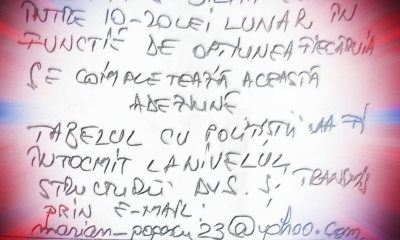 ÎNTRE 10-20 LEI LUNAR ÎN
FUNCȚIE DE OPȚIUNEA FIECĂRUIA
SE COMPLETEAZĂ ACEASTĂ
ADEZIUNE
TABELUL CU POLIȚIȘTII VA FI
ÎNTOCMIT LA NIVELUL
STRUCTURII DVS. ȘI TRANSMIS
PRIN E-MAIL:
marian_popescu23@yahoo.com